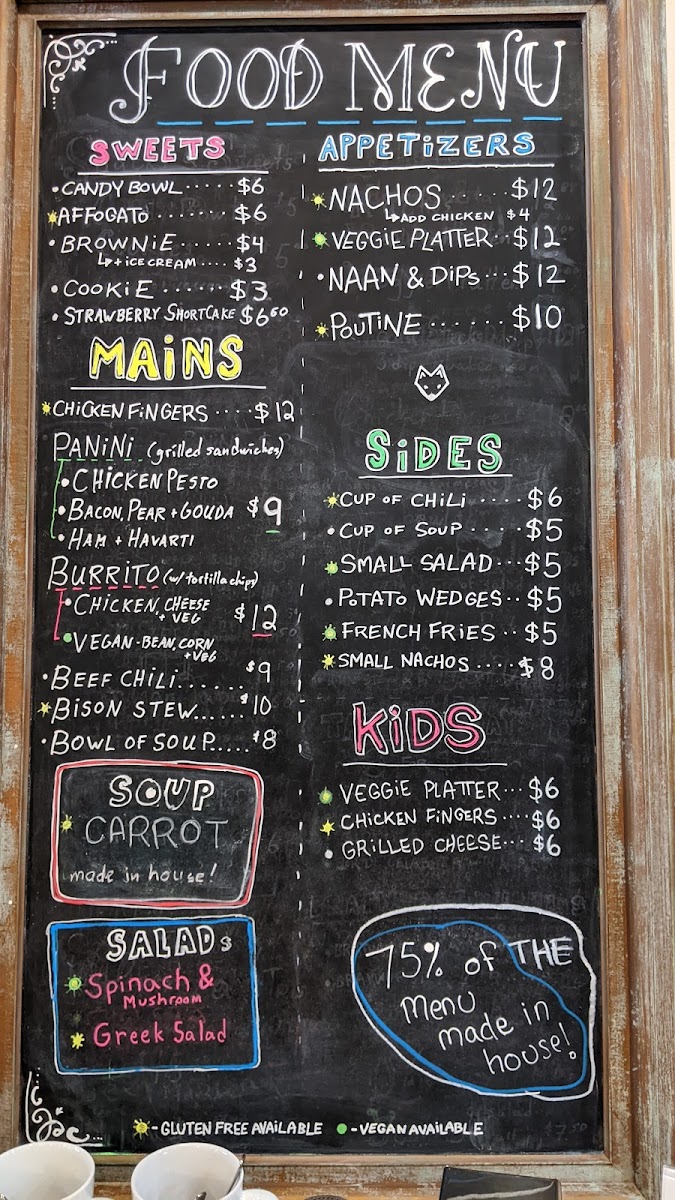 FOOD MENU
SWEETS
• CANDY BOWL ····· $6
AFFOGATO ······· $6
• BROWNIE ······ $4
↳ + ICE CREAM .... $3
• COOKIE ······ $3
• STRAWBERRY SHORTCAKE $6⁶⁰
MAINS
CHICKEN FINGERS ···· $12
PANINI (grilled sandwiches)
• CHICKEN PESTO
• BACON, PEAR + GOUDA $9
• HAM + HAVARTI
BURRITO (w/ tortilla chips)
• CHICKEN, CHEESE
+ VEG $12
• VEGAN - BEAN, CORN
+ VEG
• BEEF CHILI...... $9
BISON STEW...... $10
• BOWL OF SOUP..... $8
SOUP
CARROT
made in house!
SALADs
Spinach &
Mushroom
Greek Salad
APPETIZERS
NACHOS ······ $12
↳ ADD CHICKEN $4
VEGGIE PLATTER ·· $12
• NAAN & DIPS ··· $12
POUTINE ······ $10
SIDES
CUP OF CHILI ···· $6
• CUP OF SOUP ···· $5
SMALL SALAD ··· $5
• POTATO WEDGES ·· $5
FRENCH FRIES ·· $5
SMALL NACHOS ···· $8
KIDS
VEGGIE PLATTER ··· $6
CHICKEN FINGERS ···· $6
• GRILLED CHEESE ··· $6
75% of THE
Menu
made in
house!
- GLUTEN FREE AVAILABLE ● - VEGAN AVAILABLE